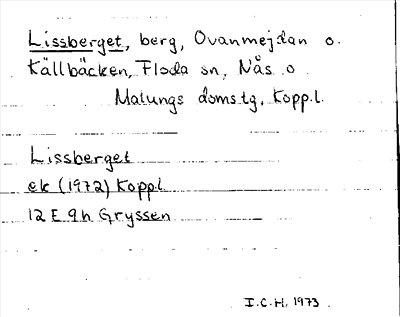 Lissberget, berg, Ovanmejdan o.
Källbäcken, Floda sn, Nås o
Malungs domstg, Kopp.l.
Lissberget
ek (1972) Kopp.l
12 E 9h Gryssen
I.C.H. 1973